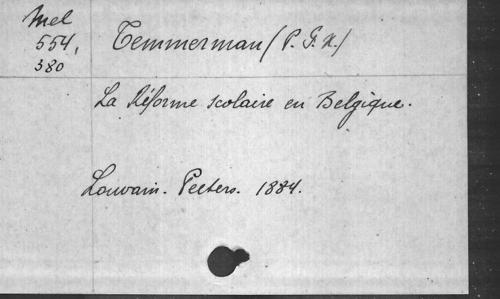 Mel
554,
380
Temmerman (P. G. H.)
La Réforme scolaire en Belgique.
Louvain. Peeters. 1884.